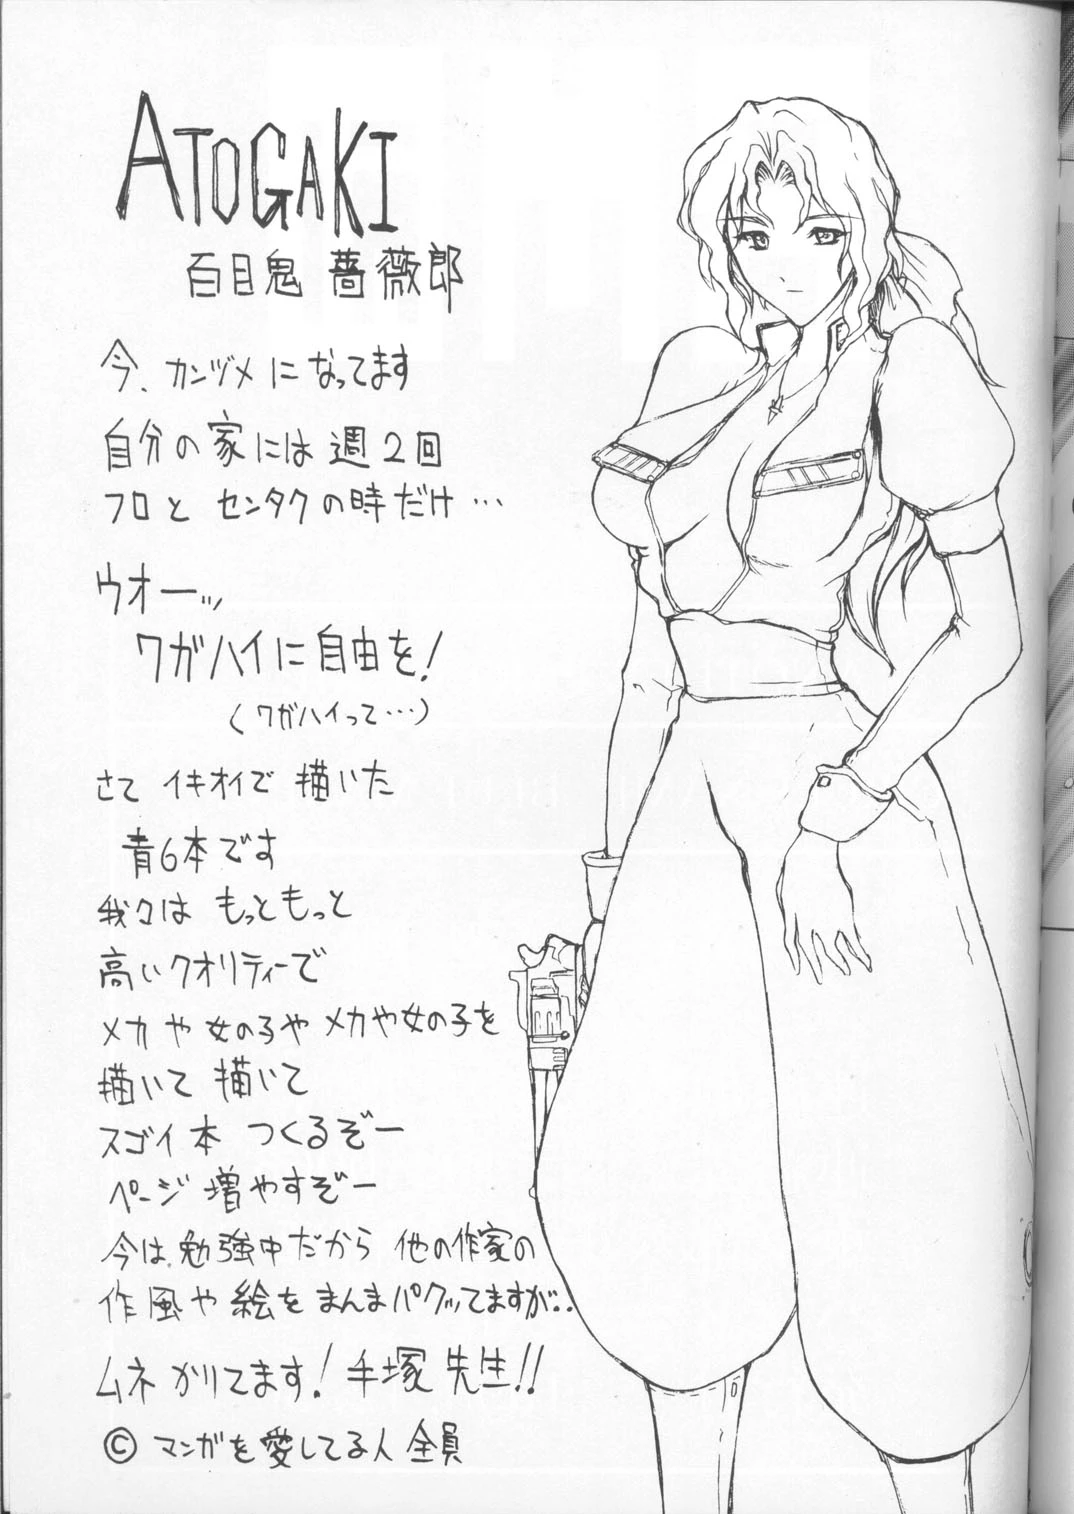 ATOGAKI
百目鬼 薔薇郎
今、カンヅメになってます
自分の家には週2回
フロとセンタクの時だけ…
ウオーッ
ワガハイに自由を!
(ワガハイって…)
さてイキオイで描いた
青6本です
我々はもっともっと
高いクオリティーで
メカや女の子やメカや女の子を
描いて描いて
スゴイ本つくるぞー
ページ増やすぞー
今は、勉強中だから他の作家の
作風や絵をまんまパクッてますが..
ムネかりてます!手塚先生!!
© マンガを愛してる人全員